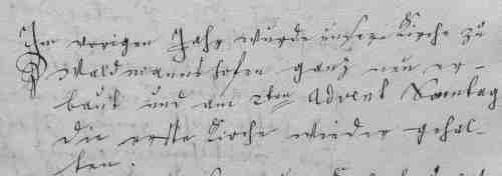 Im vorigen Jahr wurde unsere Kirche zu
Waldmannshofen ganz neu er-
baut und am 2ten Advent Sonntag
die erste Kirche wieder gehal-
ten.